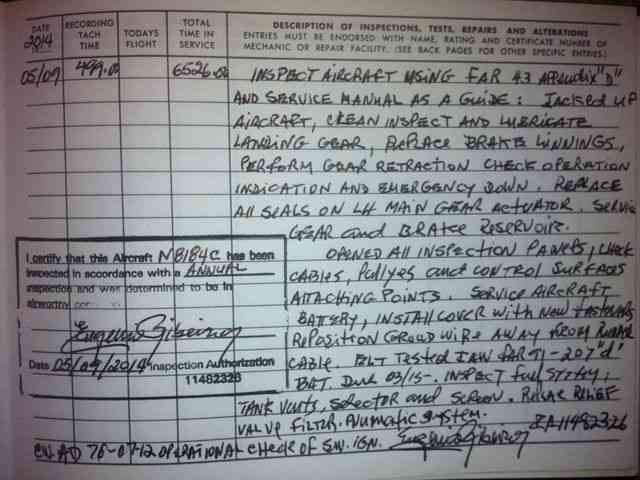 DATE
2014
RECORDING TACH TIME
TODAYS FLIGHT
TOTAL TIME IN SERVICE
DESCRIPTION OF INSPECTIONS, TESTS, REPAIRS AND ALTERATIONS
ENTRIES MUST BE ENDORSED WITH NAME, RATING AND CERTIFICATE NUMBER OF
MECHANIC OR REPAIR FACILITY. (SEE BACK PAGES FOR OTHER SPECIFIC ENTRIES.)
05/09 499.00 6526.00 INSPECT AIRCRAFT USING FAR 43 APPENDIX "D"
AND SERVICE MANUAL AS A GUIDE: JACKED UP
AIRCRAFT, CLEAN INSPECT AND LUBRICATE
LANDING GEAR, REPLACE BRAKE LINNINGS,
PERFORM GEAR RETRACTION CHECK OPERATION
INDICATION AND EMERGENCY DOWN. REPLACE
All SEALS ON LH MAIN GEAR ACTUATOR. SERVICE
GEAR and BRAKE RESERVOIR.
OPENED All INSPECTION PANELS, CHECK
CABLES, Pullyes and CONTROL SURFACES
ATTACHING POINTS. SERVICE AIRCRAFT
BATTERY, INSTALL COVER WITH NEW FASTENERS
REPOSITION GROUD WIRE AWAY FROM
CABLE. ELT TESTED IAW FAR 91-207 "d"
BAT. DUE 03/15-. INSPECT FUEL
TANK VENTS, SELECTOR AND SCREEN. RELIEF
VALVE FILTER. PNUMATIC SYSTEM.
I certify that this Aircraft N8184C has been
inspected in accordance with a ANNUAL
inspection and was determined to be in
airworthy
Date 05/09/2014 Inspection Authorization
11482326
IA 11482326
AD 76-07-12 OPERATIONAL CHECK OF SW. IGN.